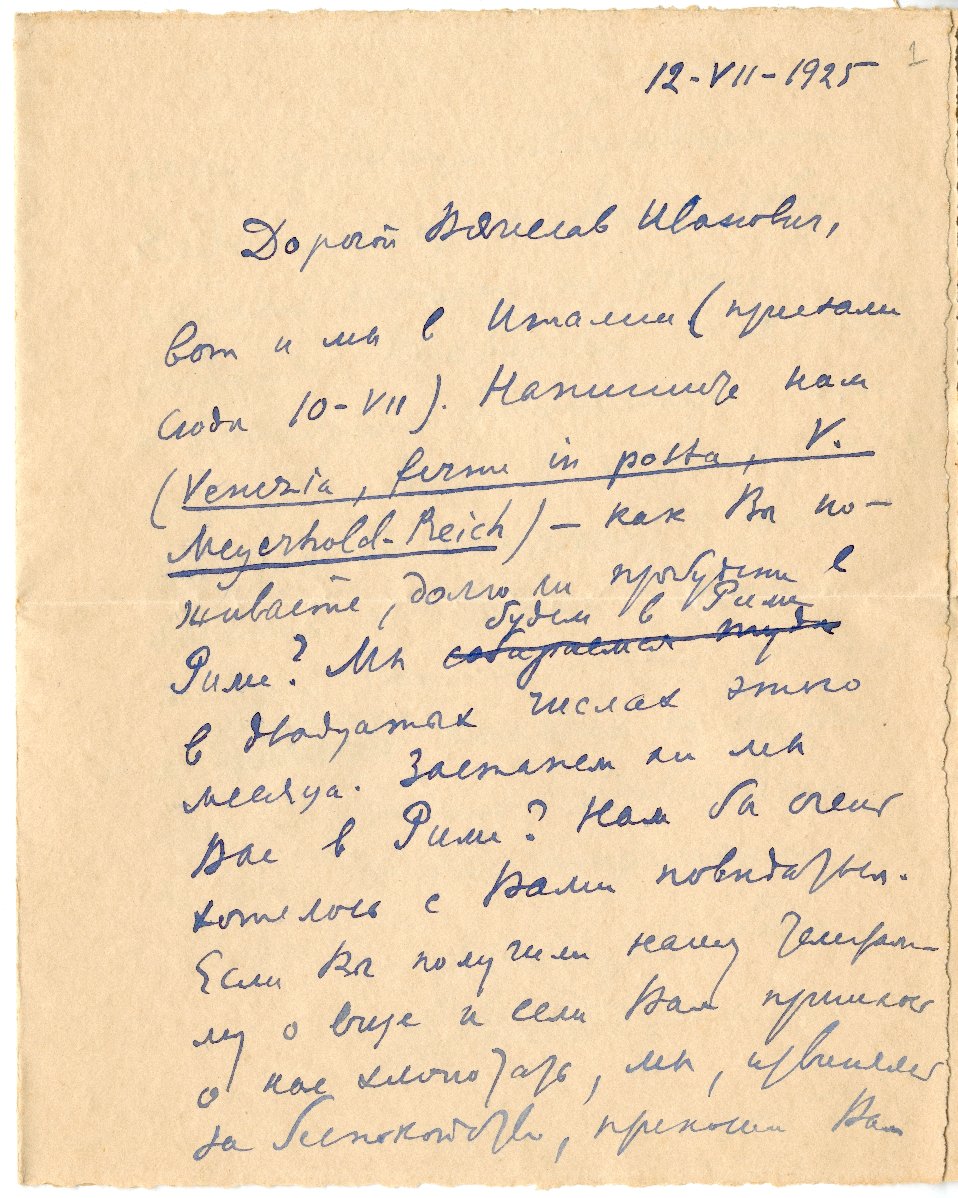 1
12-VII-1925
Дорогой Вячеслав Иванович,
вот и мы в Италии (приехали
сюда 10-VII). Напишите нам
(Venezia, ferme in posta, V.
Meyerhold-Reich) — как Вы по-
живаете, долго ли пробудете в
будем в Риме
Риме? Мы собираемся туда
в двадцатых числах этого
месяца. Застанем ли мы
Вас в Риме? Нам бы очень
хотелось с Вами повидаться.
Если Вы получили нашу телеграм-
му о визе и если Вам пришлось
о нас хлопотать, мы, извиняясь
за беспокойство, приносим Вам